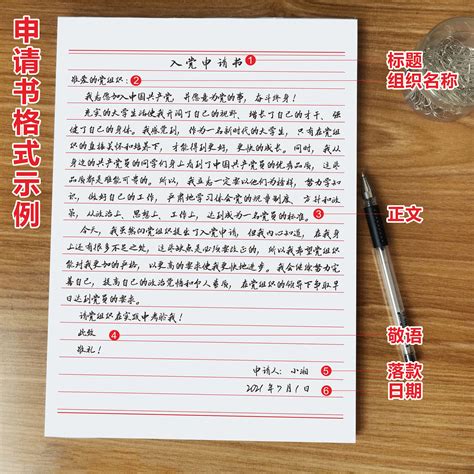 申请书格式示例
入党申请书 1
敬爱的党组织: 2
我志愿加入中国共产党,并愿意为党的事,奋斗终身!
充实的大学生活使我开阔了自己的视野、增长了自己的才干、强
健了自己的身体。我感觉到,作为一名新时代的大学生,只有在党组
织的直接关怀和培养下,才能得到更好、更快的成长。同时,我从
身边的共产党员的同学们身上看到了中国共产党员的优秀品质,这些
品质都是难能可贵的。所以,我立志一定要以他们为榜样,努力学知
识,做好自己的工作,严肃地学习体会党的规章制度、方针和政
策,从政治上、思想上、工作上,达到成为一名党员的标准。 3
今天,我虽然向党组织提出了入党申请,但我内心知道,在我身
上还有很多不足之处,这些缺点是必须要改正的,所以我希望党组织
能对我更加的严格,以更高的要求使我更快地进步。我会继续努力完
善自己,提高自己的政治觉悟和个人素质,在党组织的领导下争取早
日达到党员的要求。
请党组织在实践中考验我!
此致 4
敬礼!
申请人:小湘 5
2021年7月1日 6
标题
组织名称
正文
敬语
落款
日期